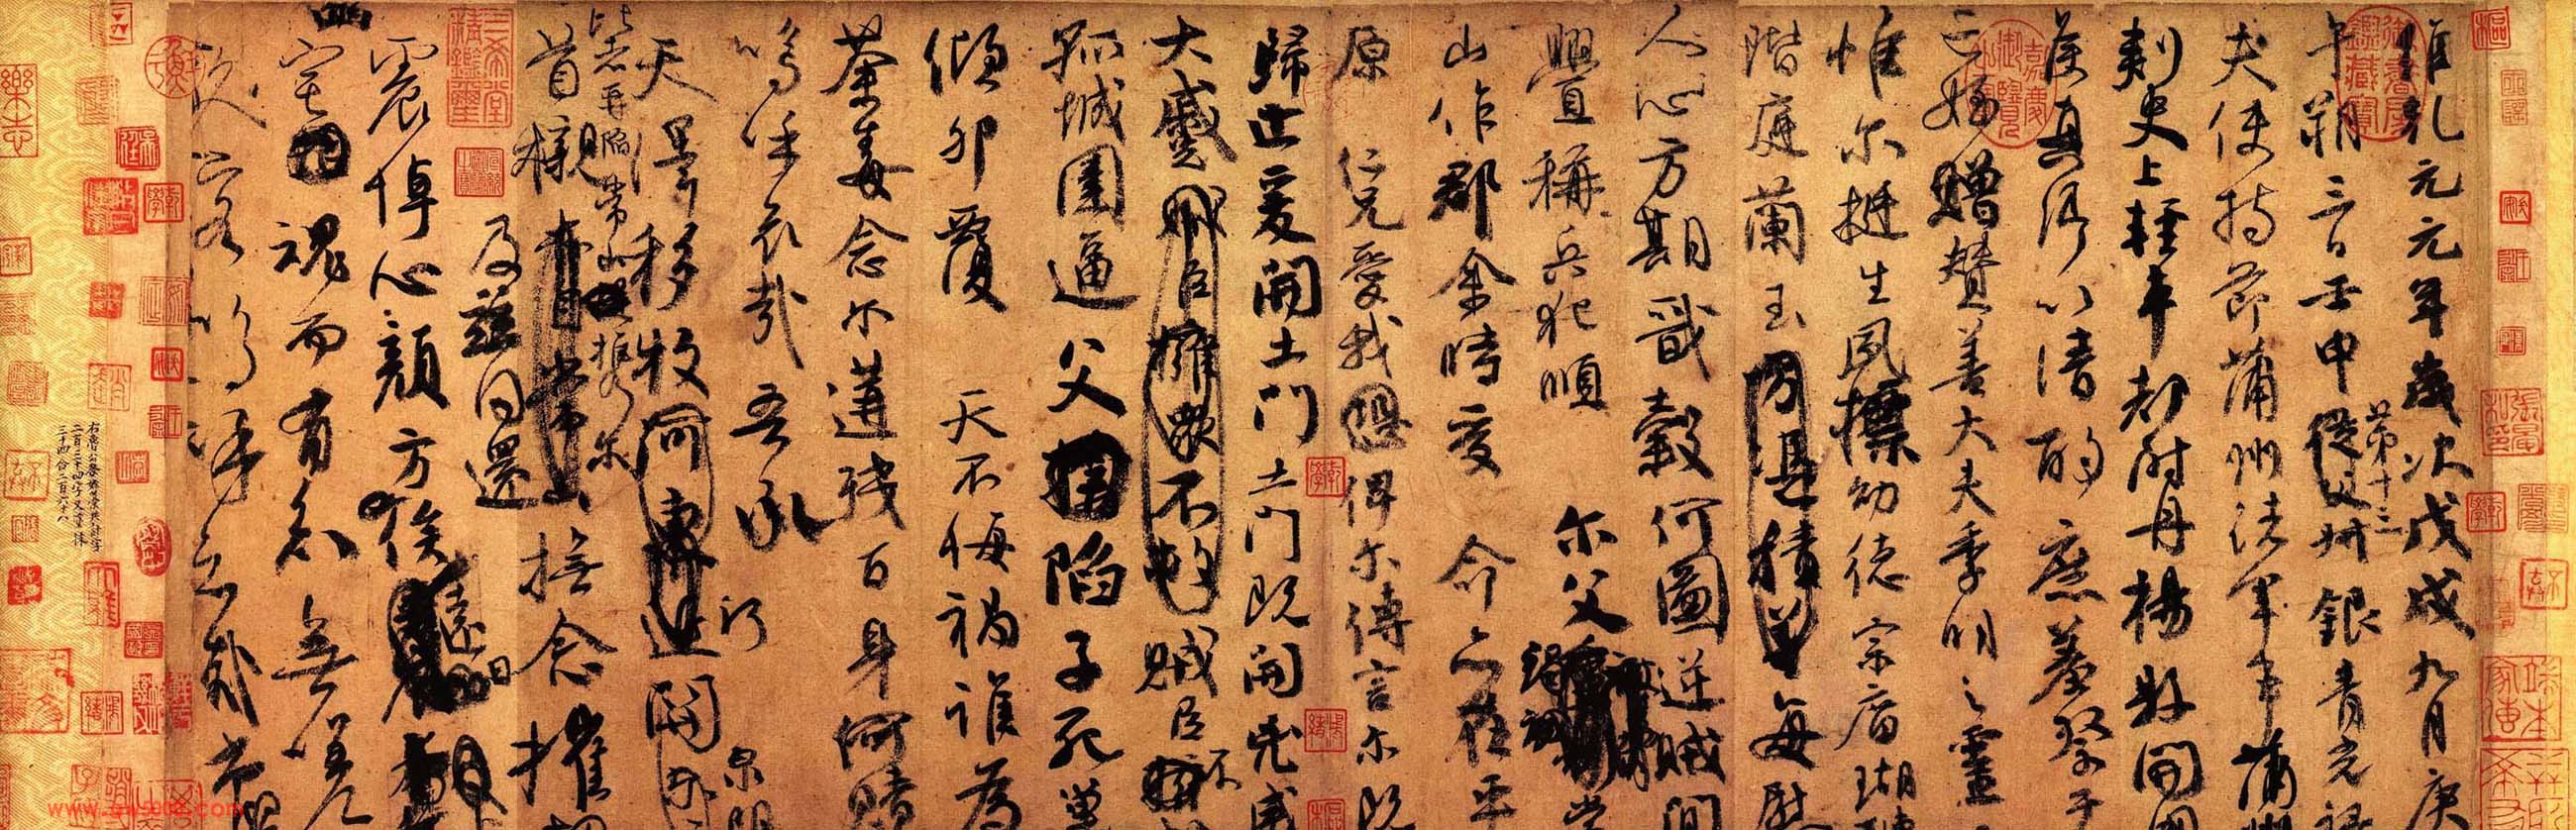 維乾元元年歲次戊戌九月庚
午朔三日壬申第十三從父叔銀青光祿
夫使持節蒲州諸軍事蒲州
刺史上輕車都尉丹楊縣開國
侯真卿以清酌庶羞祭于
亡姪贈贊善大夫季明之靈
惟爾挺生夙標幼德宗廟瑚璉
階庭蘭玉方憑積善每慰
人心方期戩穀何圖逆賊間
舋稱兵犯順爾父竭誠常
山作郡余時受命亦在平
原仁兄愛我恐俾爾傳言爾既
歸止爰開土門土門既開兇威
大蹙賊臣擁衆不救賊臣不
孤城圍逼父擒陷子死巢
傾卵覆天不悔禍誰為
荼毒念爾遘殘百身何贖
嗚呼哀哉吾承
天澤移牧河東近河關
泉明
比者再陷常山攜爾
首櫬及茲同還
撫念摧切
震悼心顏方俟遠日
幽宅魂而有知無嗟
久客嗚呼哀哉尚饗
右魯公祭姪藁共計字
二百三十四字又塗抹
三十四合二百六十八